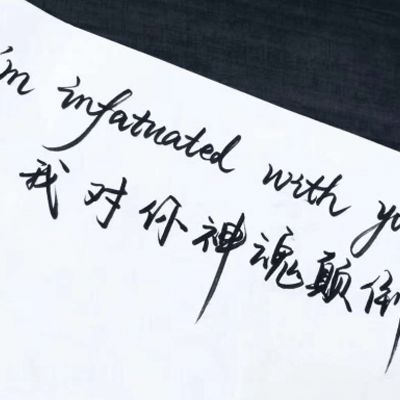 in infatuated with yo
我对你神魂颠倒